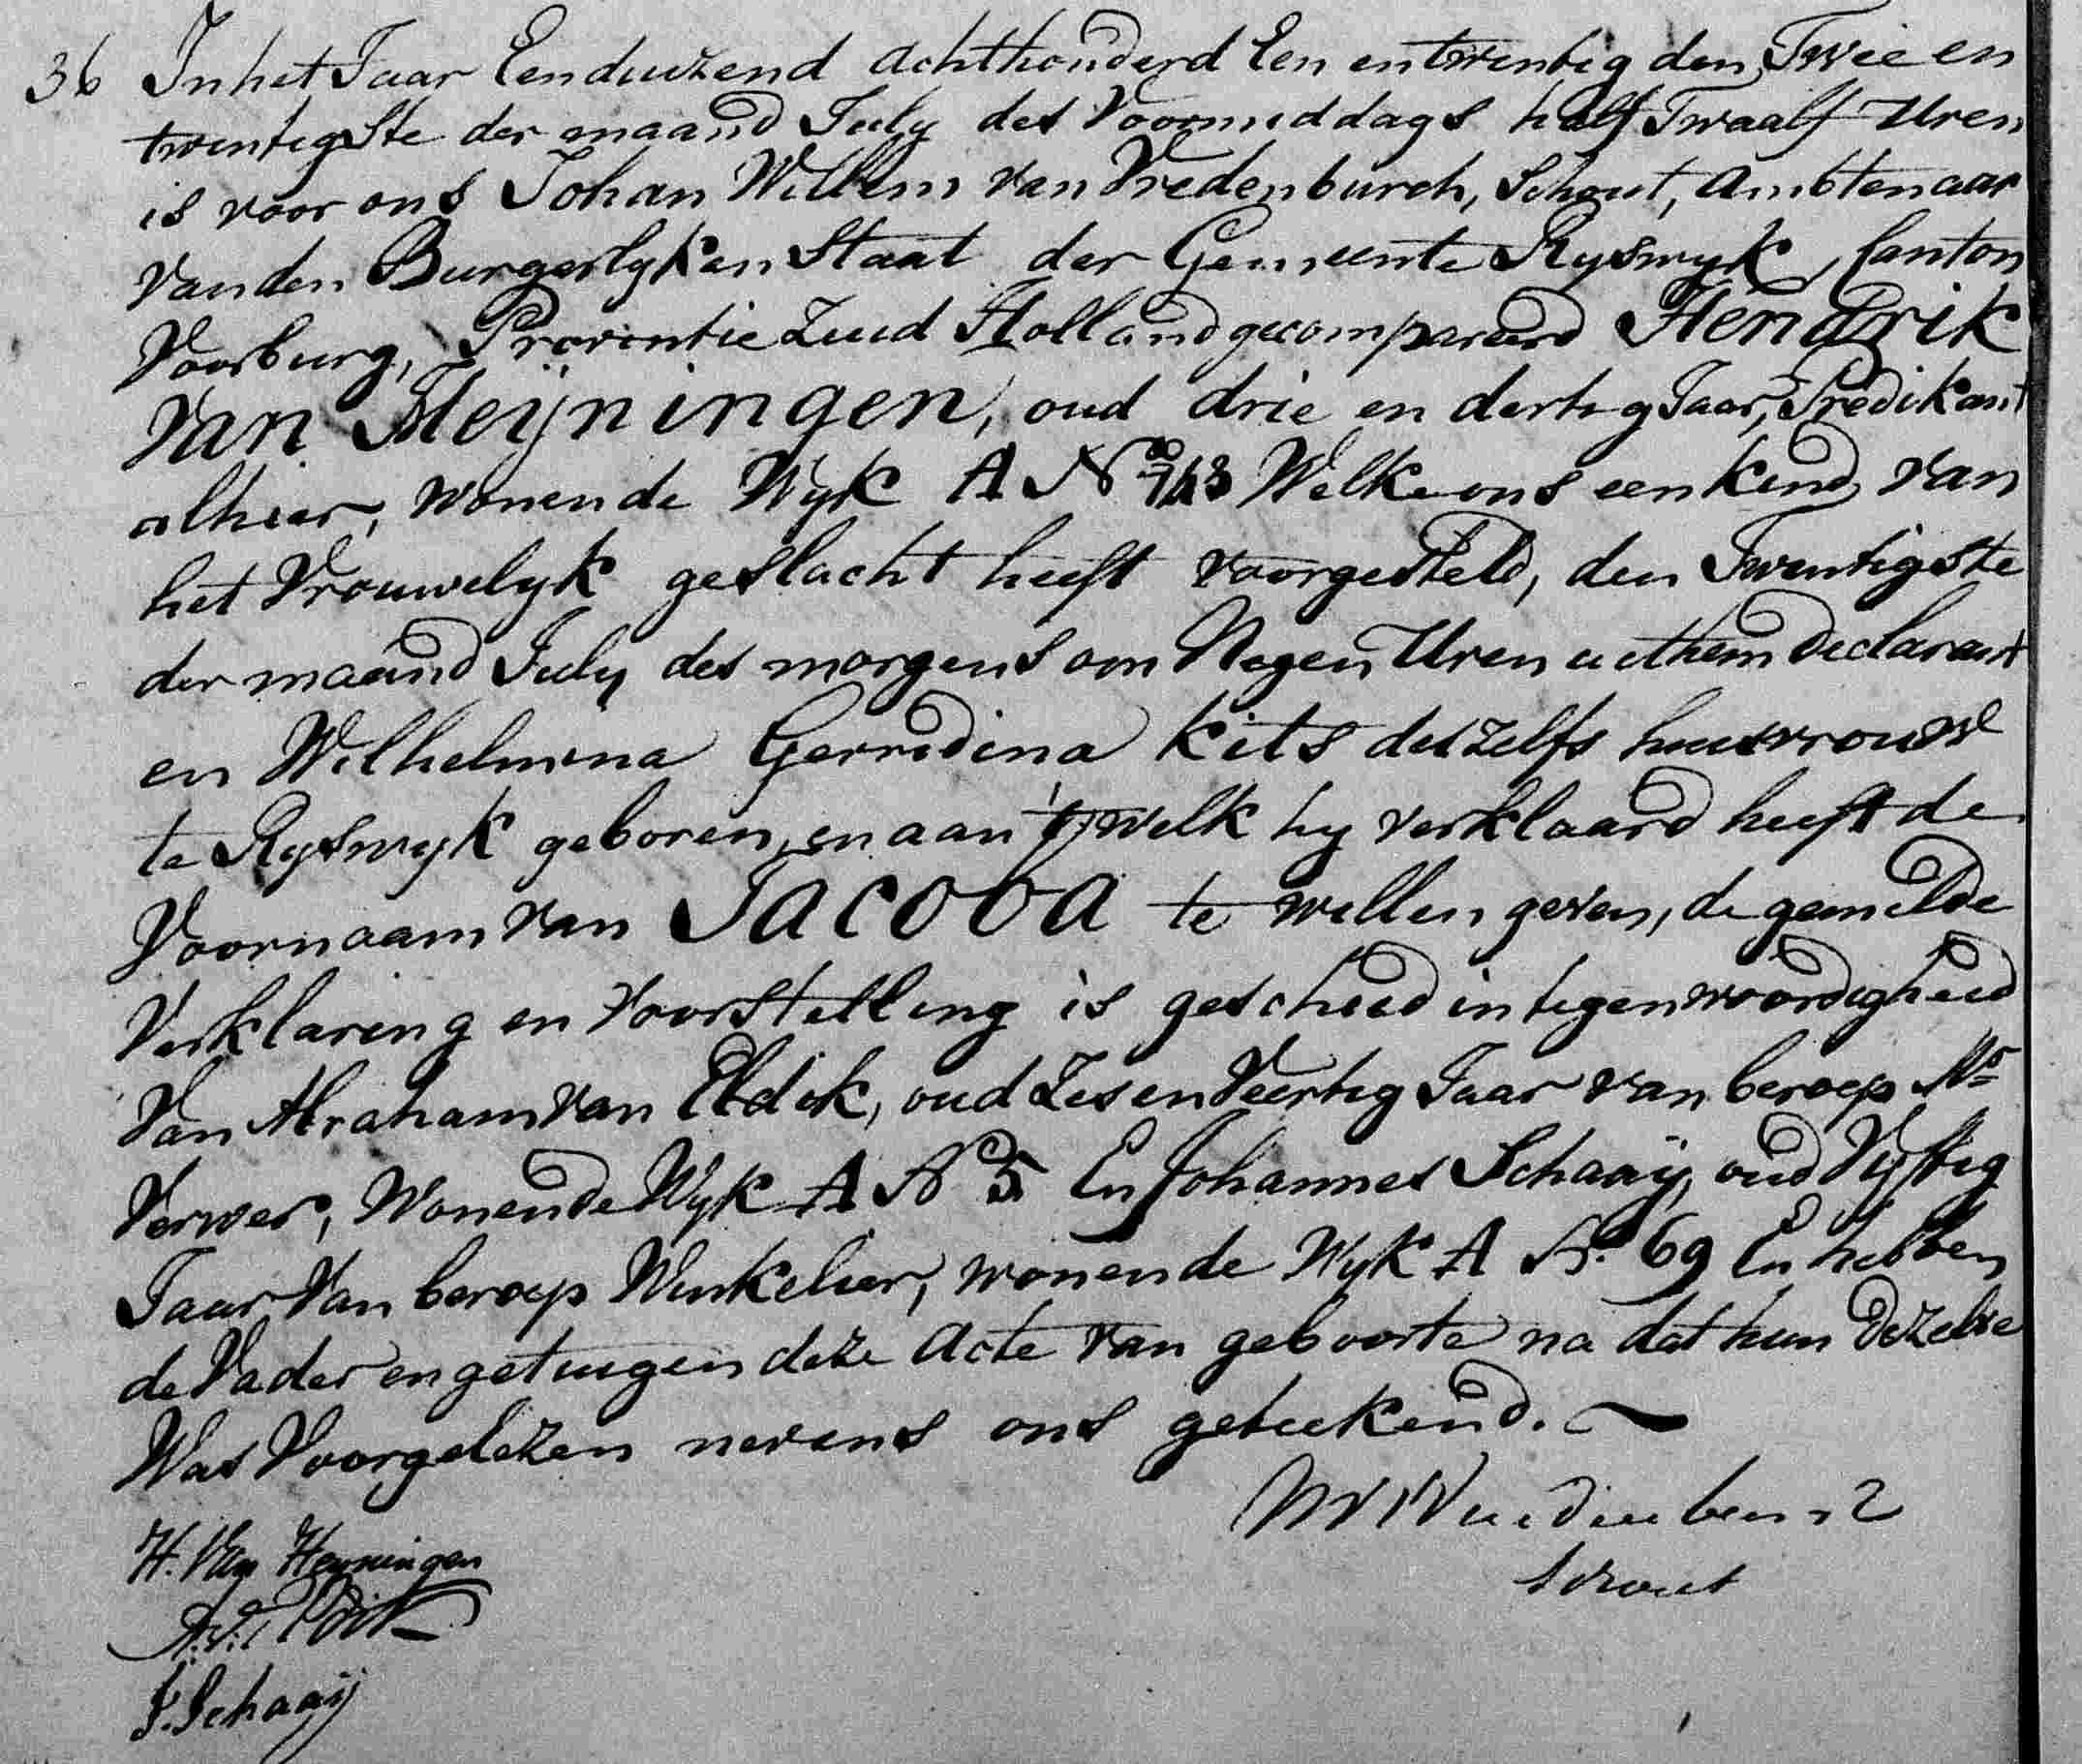 36 In het Jaar Eenduizend Achthonderd Een en twentig den Twee en
twentigste der maand July des Voormiddags half Twaalf Uren
is voor ons Johan Willem van Vredenburch, Schout, Ambtenaar
van den Burgerlyken Staat der Gemeente Ryswyk, Canton
Voorburg, Provintie Zuid Holland gecompareerd Hendrik
van Heijningen, oud drie en dertig Jaar, Predikant
alhier, wonende Wyk A No Welke ons een kind van
het Vrouwelyk geslacht heeft voorgesteld, den Twentigste
der maand July des morgens om Negen Uren uit hem Declarant
en Wilhelmina Gerridina Kits deszelfs huisvrouw
te Ryswyk geboren, en aan 't welk hy verklaard heeft de
Voornaam van Jacoba te willen geven, de gemelde
Verklaring en voorstelling is geschied in tegenwoordigheid
Van Abraham van Eldik, oud Zes en Veertig Jaar van beroep Mr
Verwer, Wonende Wyk A N 5 En Johannes Schaaij, oud Vyftig
Jaar Van beroep Winkelier, wonende Wyk A No. 69 En hebben
de Vader en getuigen deze Acte van geboorte na dat hun dezelve
Was Voorgelezen nevens ons geteekend.
H. Van Heyningen
Schout
J. Schaaij